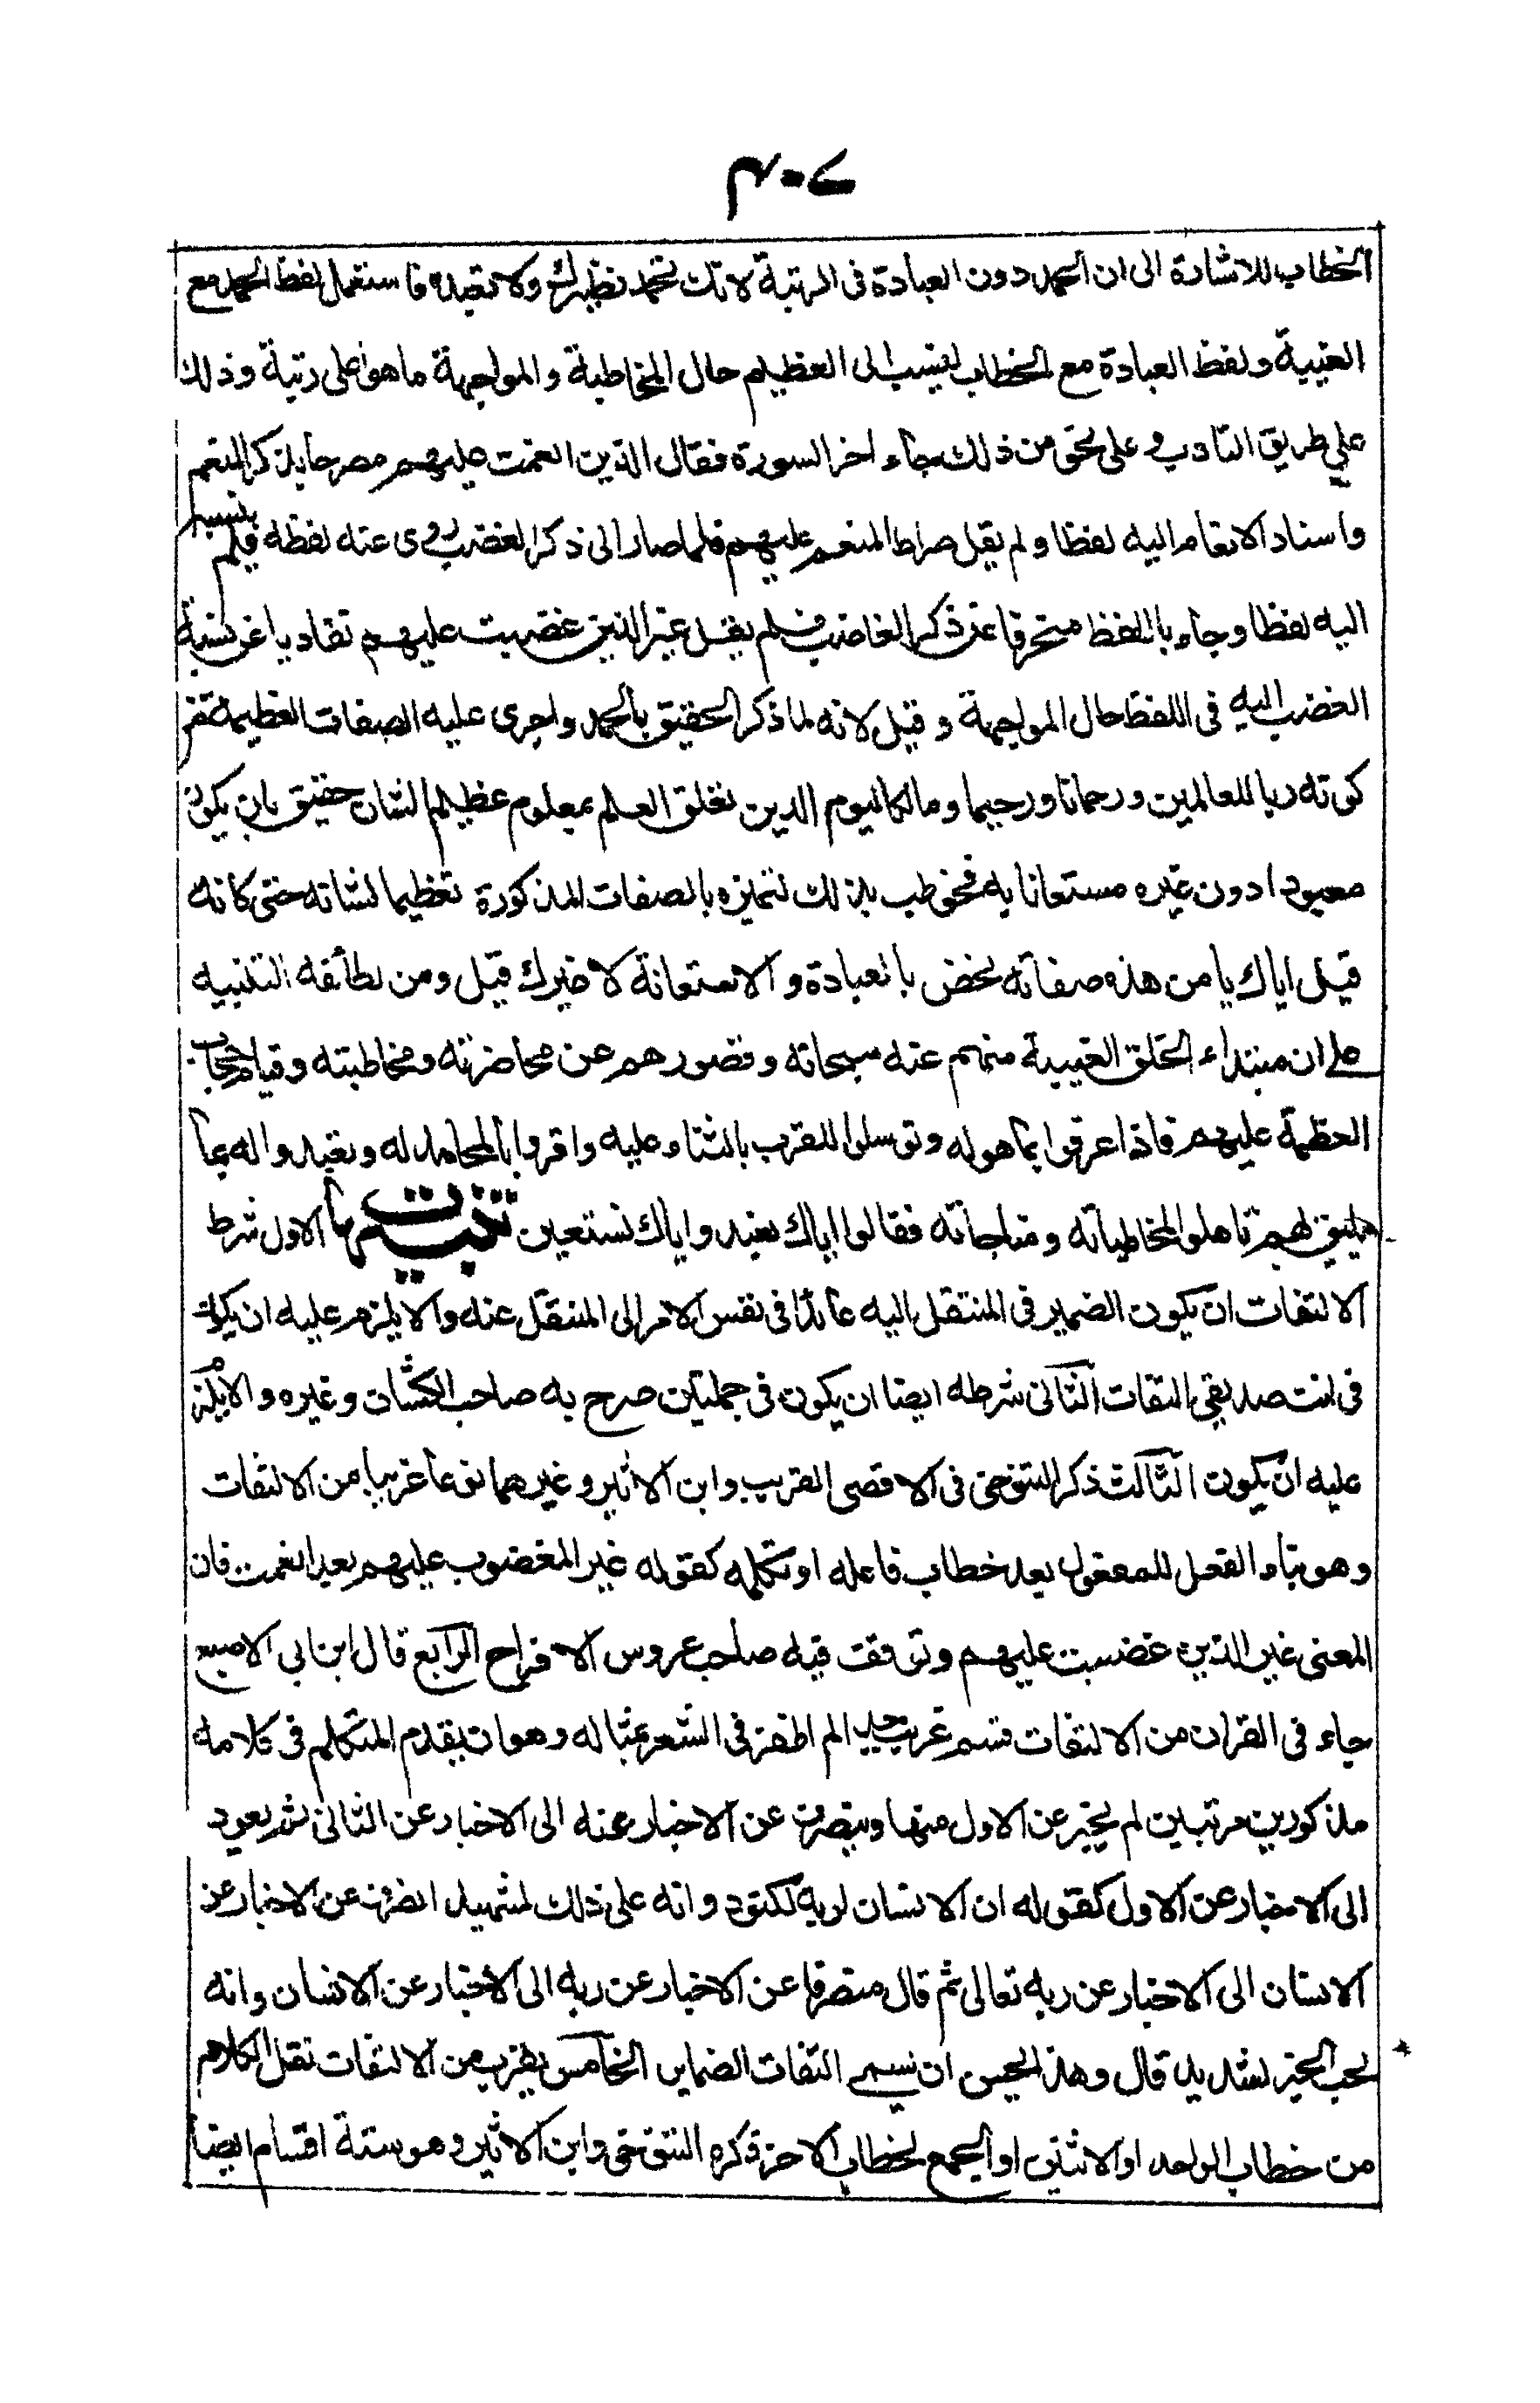 ٣٠٤
الخطاب للاشارة الى ان الحمد دون العبادة فى الرتبة لانك تحمد نظيرك ولا تعبده فاستعمل لفظ الحمد مع
الغيبة ولفظ العبادة مع الخطاب لينسب الى العظيم حال المخاطبة والمواجهة ما هو اعلى رتبة وذلك
على طريق التادب وعلى نحو من ذلك جاء اخر السورة فقال الذين انعمت عليهم مصرحا بذكر المنعم
واسناد الانعام اليه لفظا ولم يقل صراط المنعم عليهم فلما صار الى ذكر الغضب زوى عنه لفظه فلم ينسبه
اليه لفظا وجاء باللفظ منحرفا عن ذكر الغاضب فلم يقل غير الذين غضبت عليهم تفاديا عن نسبة
الغضب اليه فى اللفظ حال المواجهة وقيل لانه لما ذكر الحقيق بالحمد واجرى عليه الصفات العظيمة من
كونه ربا للعالمين ورحمانا ورحيما ومالكا ليوم الدين تعلق العلم بمعلوم عظيم الشان حقيق بان يكون
معبودا دون غيره مستعانا به فخوطب بذلك لتميزه بالصفات المذكورة تعظيما لشانه حتى كانه
قيل اياك يا من هذه صفاته نخص بالعبادة والاستعانة لا غيرك قيل ومن لطائفه التنبيه
على ان مبتداء الخلق الغيبة منهم عنه سبحانه وقصورهم عن محاضرته ومخاطبته وقيام حجاب
العظمة عليهم فاذا عرفوا بما هو له وتوسلوا للقرب بالثناء عليه واقروا بالمحامد له وتعبدوا له بما
يليق بهم تاهلوا لمخاطباته ومناجاته فقالوا اياك نعبد واياك نستعين تنبيهات الاول شرط
الالتفات ان يكون الضمير فى المنتقل اليه عائدا فى نفس الامر الى المنتقل عنه والا يلزم عليه ان يكون
فى انت صديقى التفات الثانى شرطه ايضا ان يكون فى جملتين صرح به صاحب الكشاف وغيره والا يلزم
عليه ان يكون الثالث ذكر التنوخى فى الاقصى القريب وابن الاثير وغيرهما نوعا غريبا من الالتفات
وهو بناء الفعل للمفعول بعد خطاب فاعله او تكلمه كقوله غير المغضوب عليهم بعد انعمت فان
المعنى غير الذين غضبت عليهم وتوقف فيه صاحب عروس الافراح الرابع قال ابن ابي الاصبع
جاء فى القران من الالتفات قسم غريب جدا لم اظفر فى الشعر بمثاله وهو ان يقدم المتكلم فى كلامه
مذكورين مرتبين ثم يخبر عن الاول منهما وينصرف عن الاخبار عنه الى الاخبار عن الثانى ثم يعود
الى الاخبار عن الاول كقوله ان الانسان لربه لكنود وانه على ذلك لشهيد انصرف عن الاخبار عن
الانسان الى الاخبار عن ربه تعالى ثم قال منصرفا عن الاخبار عن ربه الى الاخبار عن الانسان وانه
لحب الخير لشديد قال وهذا يحسن ان يسمى التفات الضماير الخامس يقرب من الالتفات نقل الكلام
من خطاب الواحد او الاثنين او الجمع لخطاب الاخر ذكره التنوخى وابن الاثير وهو ستة اقسام ايضا